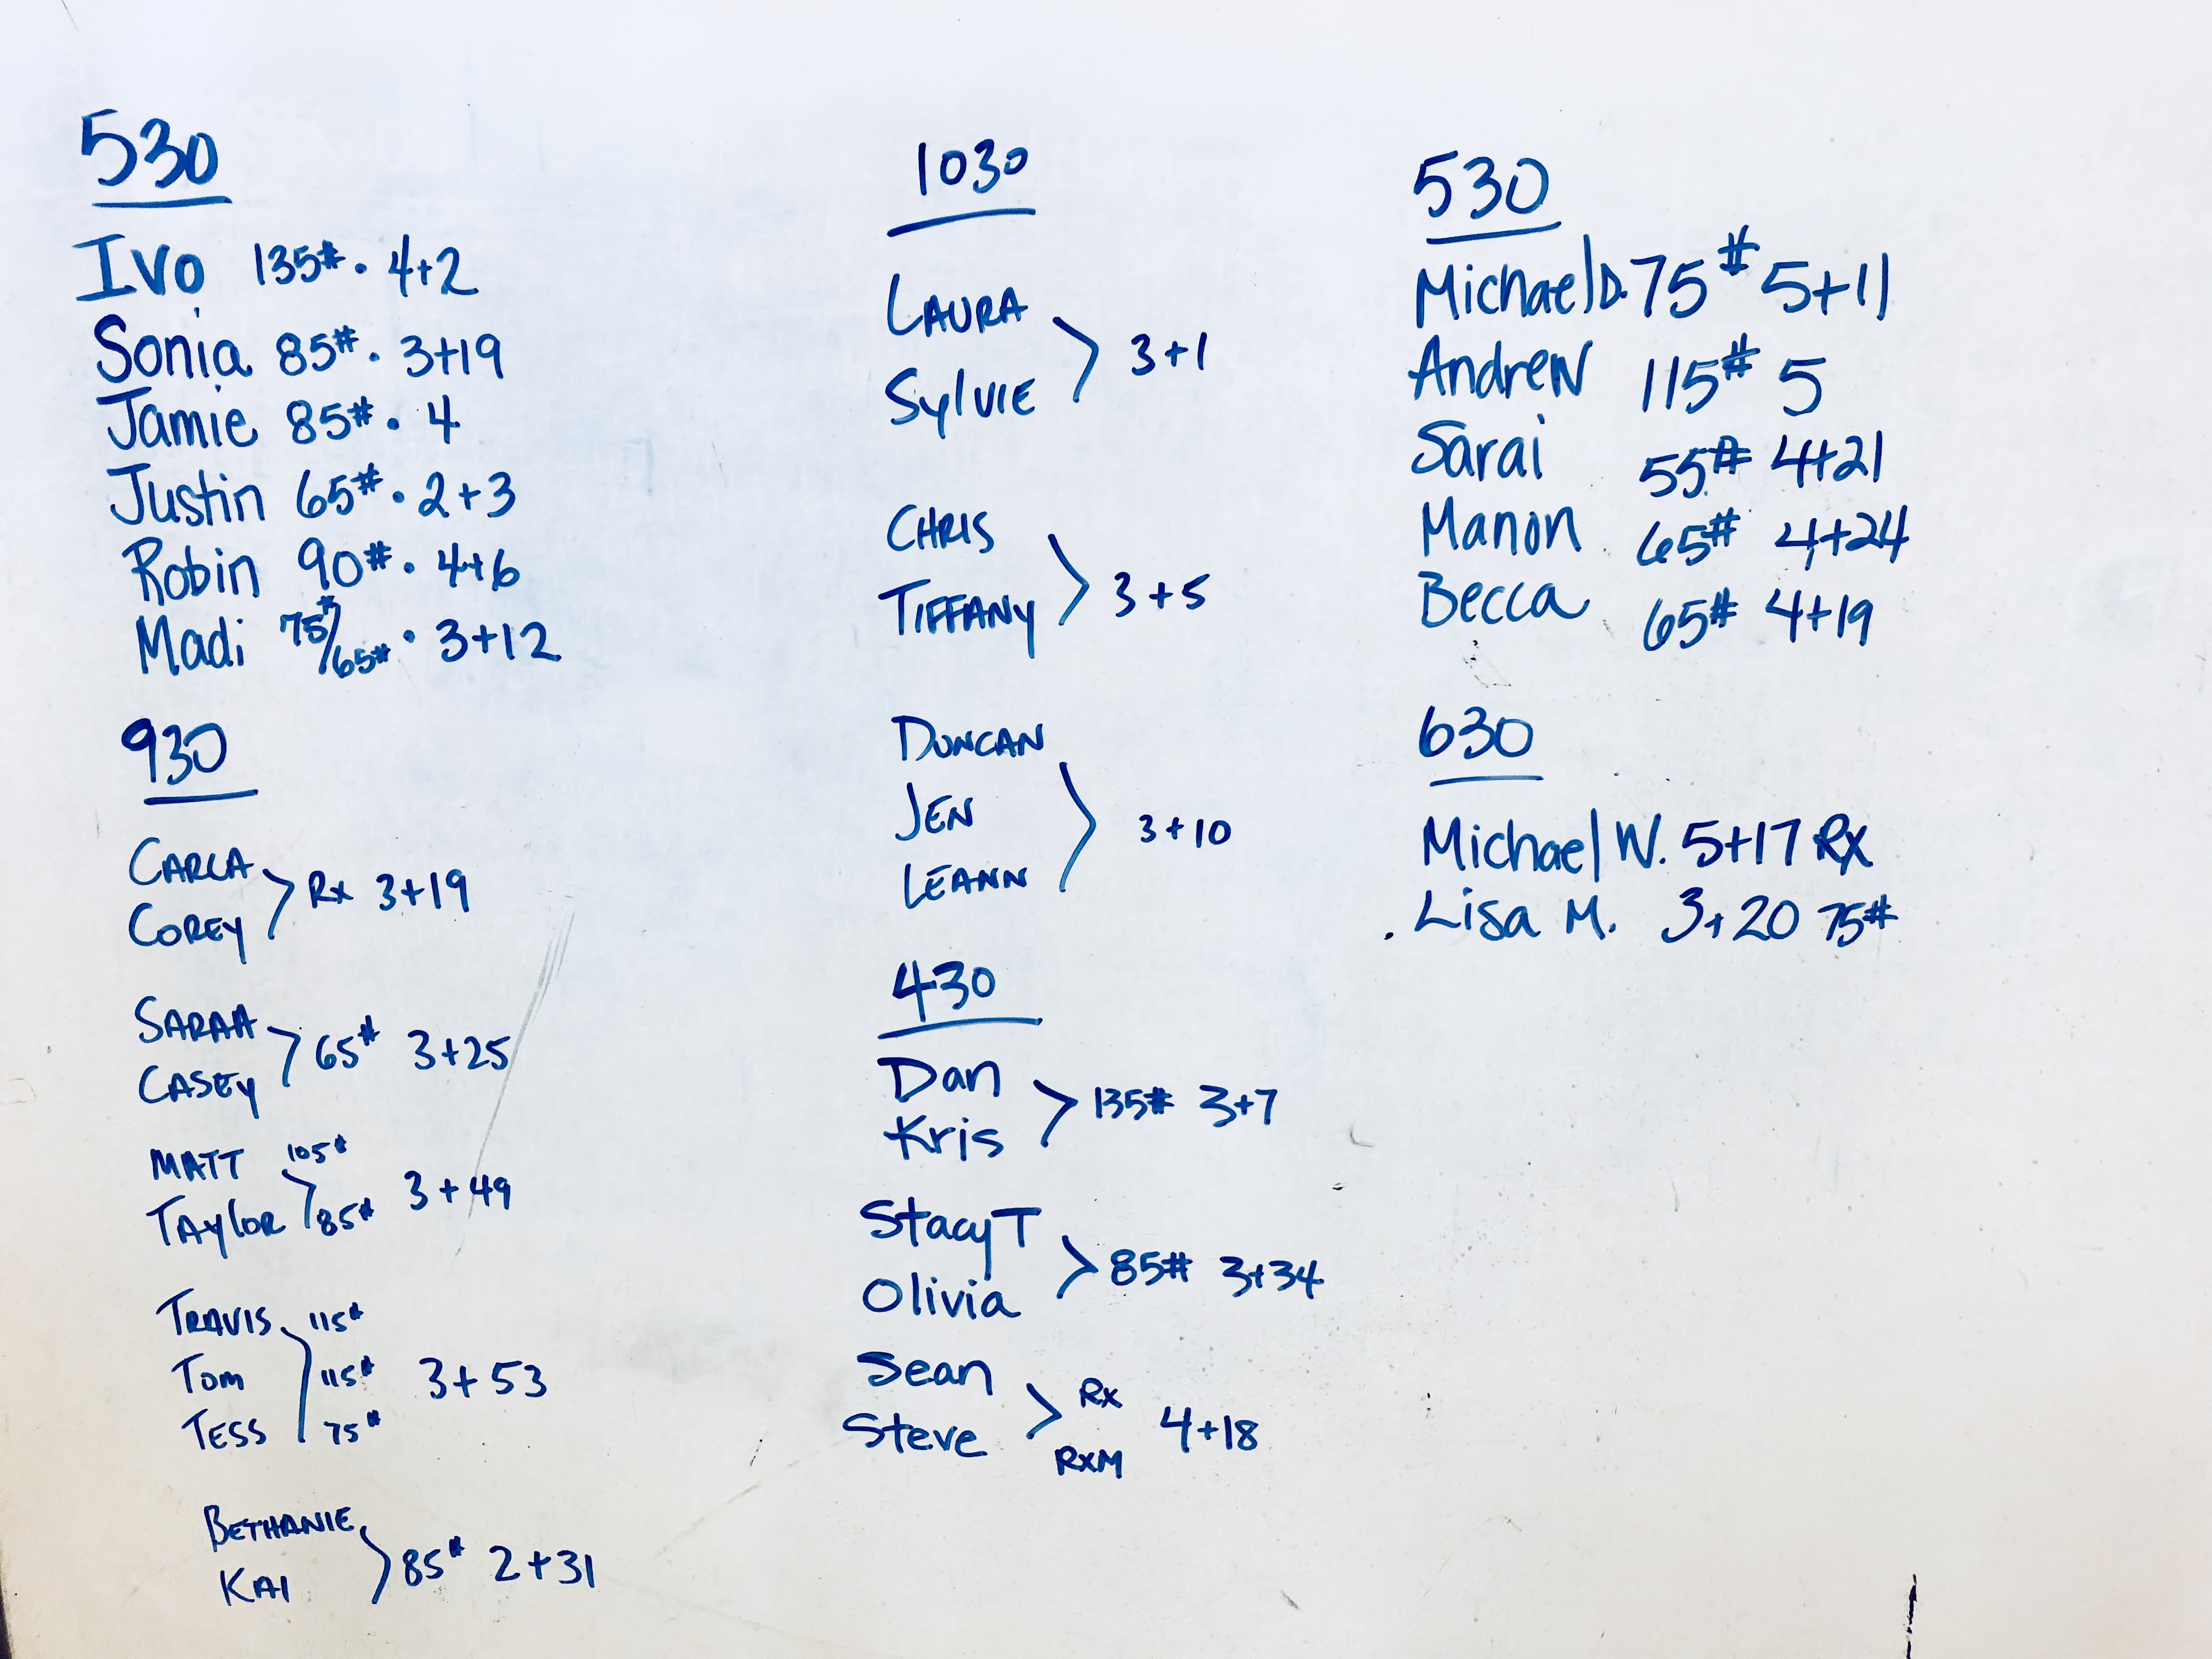 530
Ivo 135#. 4+2
Sonia 85#. 3+19
Jamie 85#. 4
Justin 65#. 2+3
Robin 90#. 4+6
Madi 75#/65#. 3+12
930
CARLA
COREY
Rx 3+19
SARAH
CASEY
65# 3+25
MATT 105#
TAYLOR 85#
3+49
TRAVIS 115#
TOM 115#
TESS 75#
3+53
BETHANIE
KAI
85# 2+31
1030
LAURA
SYLVIE
3+1
CHRIS
TIFFANY
3+5
DUNCAN
JEN
LEANN
3+10
430
Dan
Kris
135# 3+7
Stacy T
Olivia
85# 3+34
Sean Rx
Steve RxM
4+18
530
Michael D. 75# 5+11
Andrew 115# 5
Sarai 55# 4+21
Manon 65# 4+24
Becca 65# 4+19
630
Michael W. 5+17 Rx
Lisa M. 3+20 75#